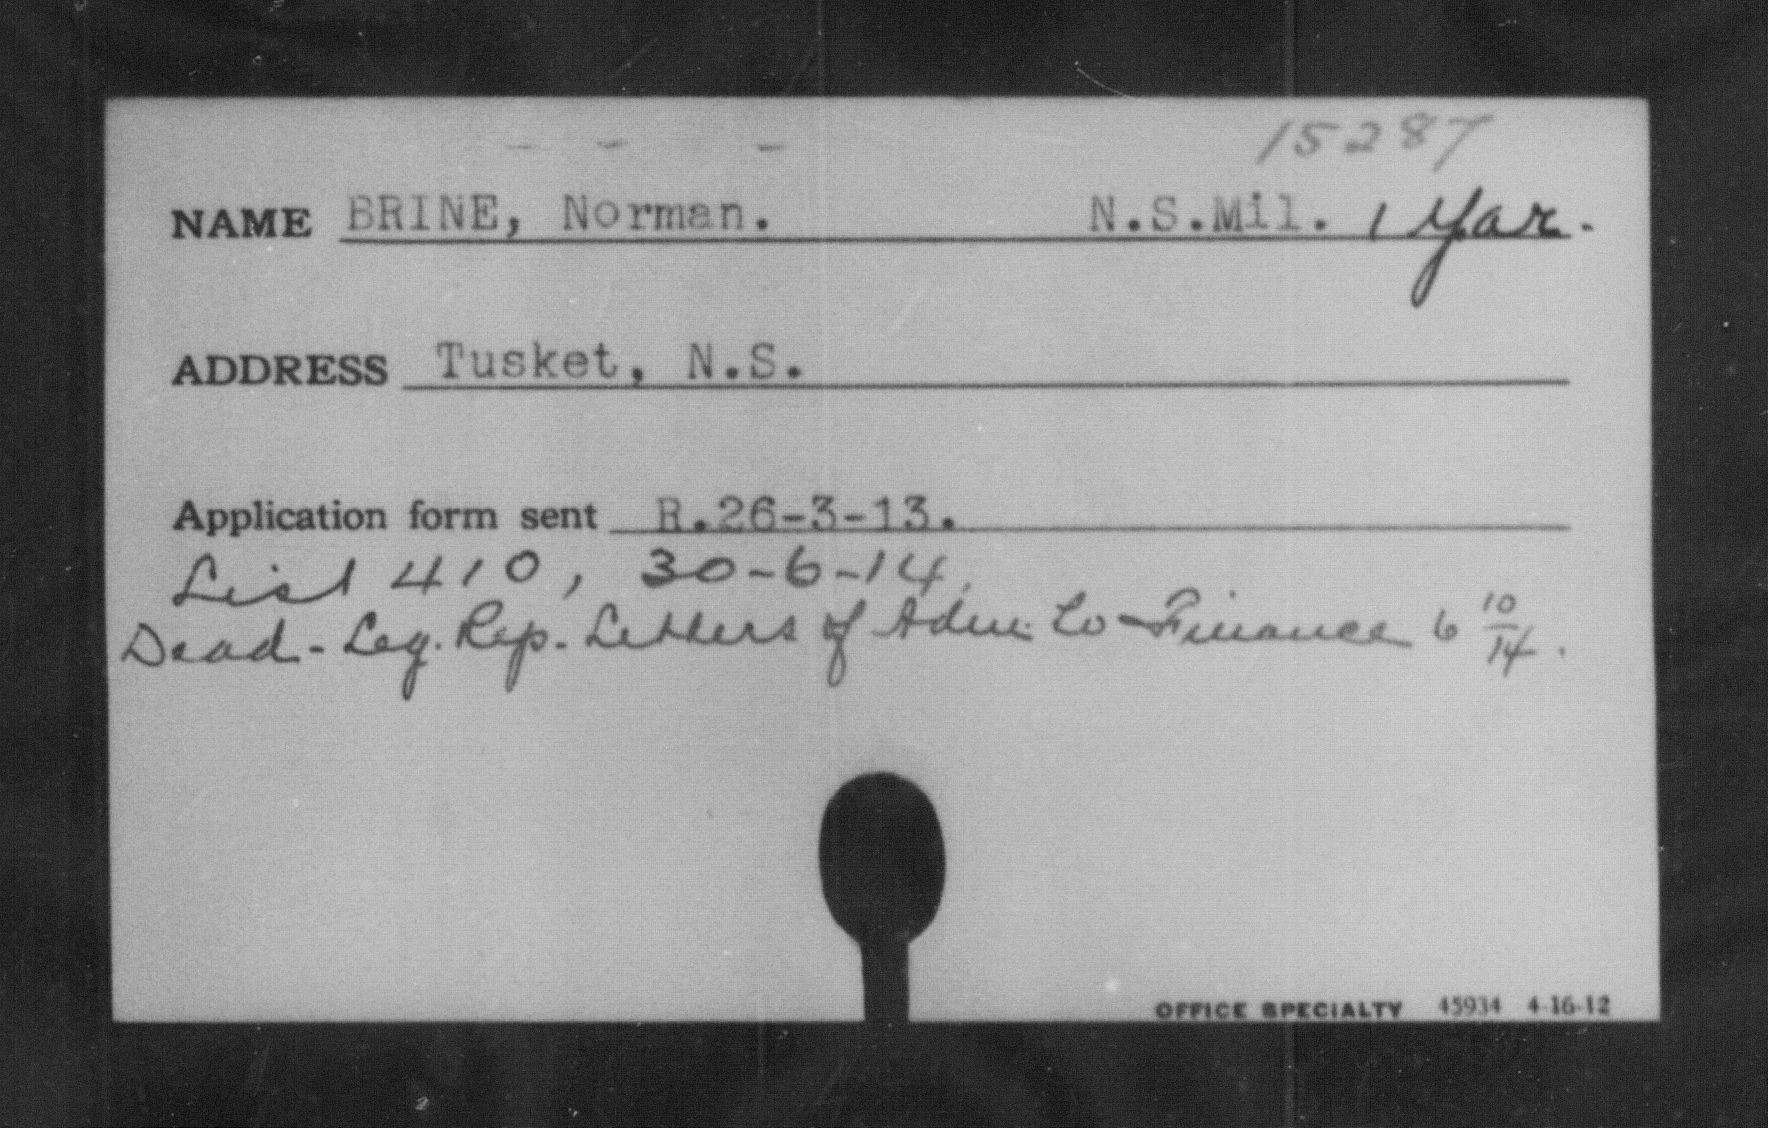 15287
NAME BRINE, Norman. N.S.Mil. 1 Yar.
ADDRESS Tusket, N.S.
Application form sent R.26-3-13.
List 410, 30-6-14,
Dead - Leg. Rep. - Letters of Adm. to Finance 6 10/14.
OFFICE SPECIALTY 45934 4-16-12